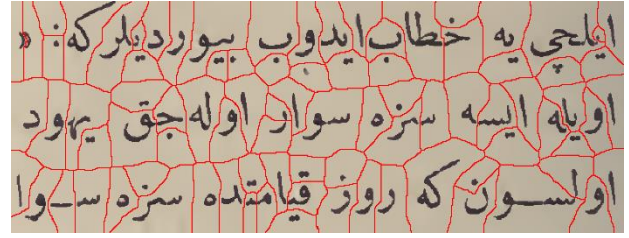 ایلچی یه خطاب ایدوب بیوردیلر که: «
اویله ایسه سزه سوار اوله جق یهود
اولسـون که روز قیامتده سزه سـوا